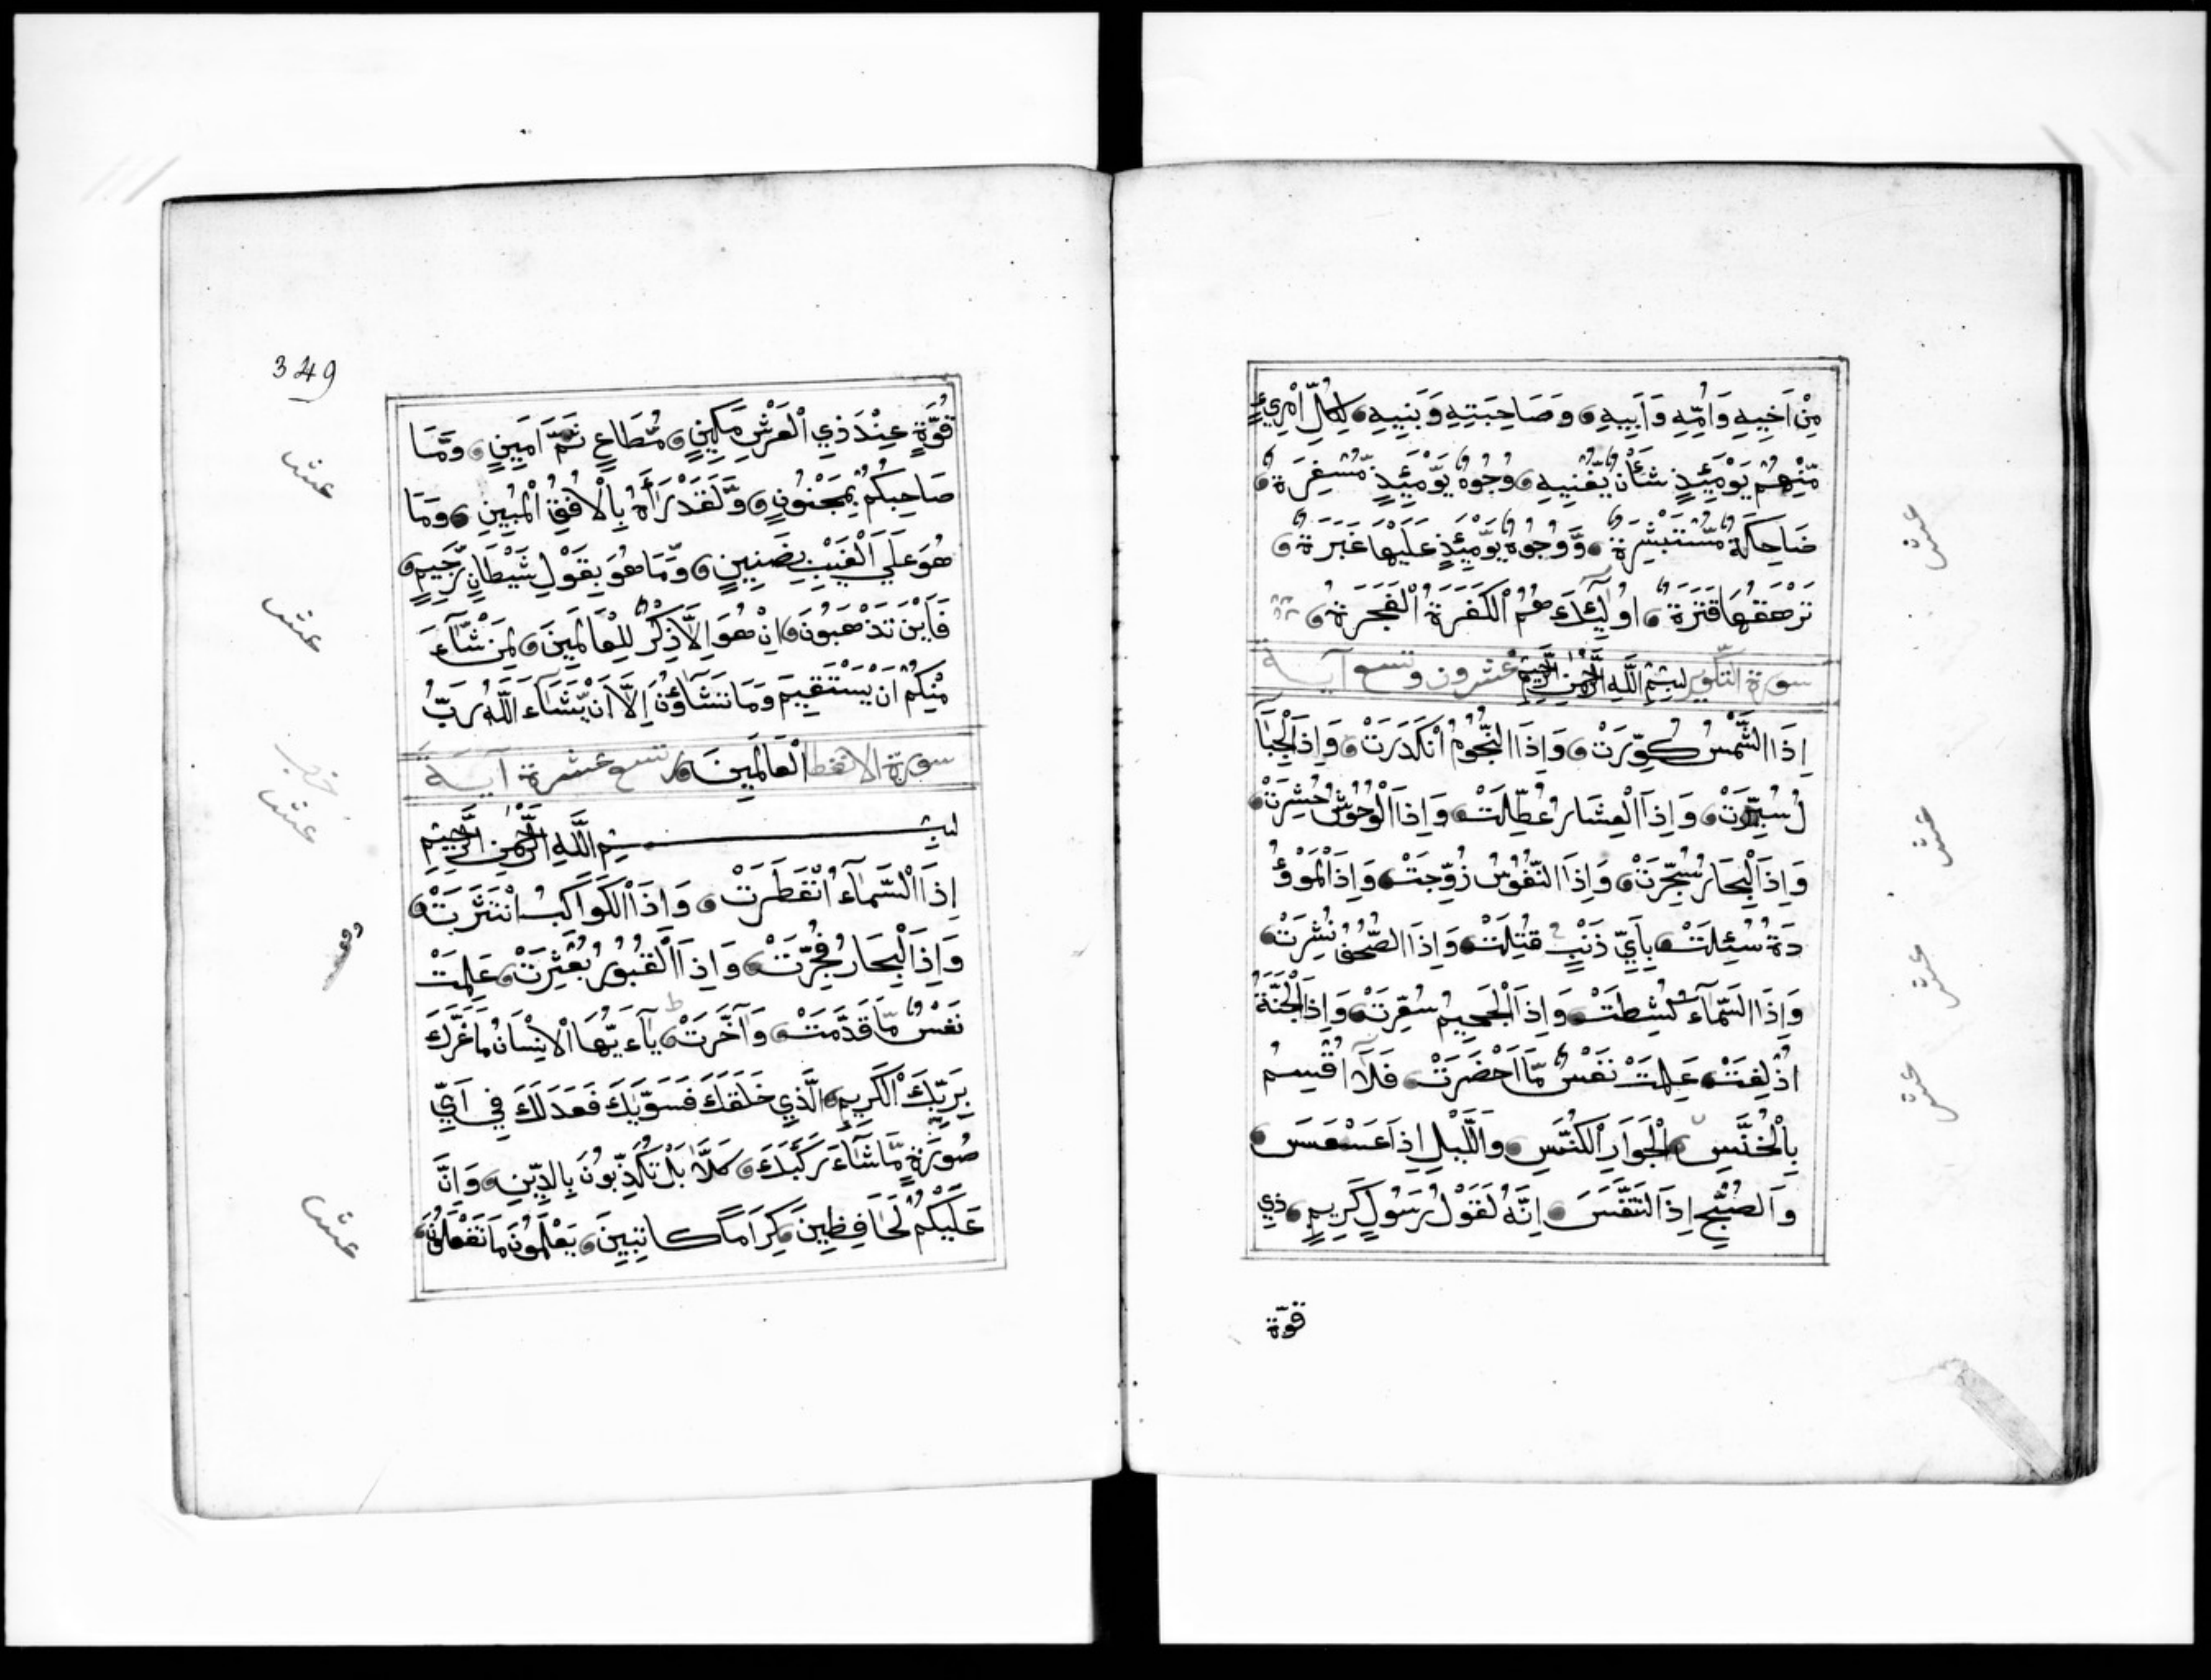 مِنْ اَخِيهِ وَاُمِّهِ وَاَبِيهِ وَصَاحِبَتِهِ وَبَنِيهِ لِكُلِّ امْرِيءٍ
مِّنْهُمْ يَوْمَئِذٍ شَأْنٌ يُّغْنِيهِ وُجُوهٌ يَّوْمَئِذٍ مُّسْفِرَةٌ
ضَاحِكَةٌ مُّسْتَبْشِرَةٌ وَّوُجُوهٌ يَّوْمَئِذٍ عَلَيْهَا غَبَرَةٌ
تَرْهَقُهَا قَتَرَةٌ اُولٰٓئِكَ هُمُ الْكَفَرَةُ الْفَجَرَةُ
سورة التكوير بِسْمِ اللَّهِ الرَّحْمٰنِ الرَّحِيمِ عشرون وتسع آية
اِذَا الشَّمْسُ كُوِّرَتْ وَاِذَا النُّجُومُ انْكَدَرَتْ وَاِذَا الْجِبَا
لُ سُيِّرَتْ وَاِذَا الْعِشَارُ عُطِّلَتْ وَاِذَا الْوُحُوشُ حُشِرَتْ
وَاِذَا الْبِحَارُ سُجِّرَتْ وَاِذَا النُّفُوسُ زُوِّجَتْ وَاِذَا الْمَوْؤُ
دَةُ سُئِلَتْ بِاَيِّ ذَنْبٍ قُتِلَتْ وَاِذَا الصُّحُفُ نُشِرَتْ
وَاِذَا السَّمَآءُ كُشِطَتْ وَاِذَا الْجَحِيمُ سُعِّرَتْ وَاِذَا الْجَنَّةُ
اُزْلِفَتْ عَلِمَتْ نَفْسٌ مَّا اَحْضَرَتْ فَلَآ اُقْسِمُ
بِالْخُنَّسِ الْجَوَارِ الْكُنَّسِ وَاللَّيْلِ اِذَا عَسْعَسَ
وَالصُّبْحِ اِذَا تَنَفَّسَ اِنَّهُ لَقَوْلُ رَسُولٍ كَرِيمٍ ذِي
قوّة
عشر
عشر
عشر
عشر
349
قُوَّةٍ عِنْدَ ذِي الْعَرْشِ مَكِينٍ مُّطَاعٍ ثَمَّ اَمِينٍ وَّمَا
صَاحِبُكُمْ بِمَجْنُونٍ وَّلَقَدْ رَاٰهُ بِالْاُفُقِ الْمُبِينِ وَمَا
هُوَ عَلَي الْغَيْبِ بِضَنِينٍ وَّمَا هُوَ بِقَوْلِ شَيْطَانٍ رَّجِيمٍ
فَاَيْنَ تَذْهَبُونَ اِنْ هُوَ اِلَّا ذِكْرٌ لِّلْعَالَمِينَ لِمَنْ شَآءَ
مِنْكُمْ اَنْ يَّسْتَقِيمَ وَمَا تَشَآؤُنَ اِلَّآ اَنْ يَّشَآءَ اللَّهُ رَبُّ
سورة الانفطا الْعَالَمِينَ ر تسع عشرة آيـة
بِسْمِ اللَّهِ الرَّحْمٰنِ الرَّحِيمِ
اِذَا السَّمَآءُ انْفَطَرَتْ وَاِذَا الْكَوَاكِبُ انْتَثَرَتْ
وَاِذَا الْبِحَارُ فُجِّرَتْ وَاِذَا الْقُبُورُ بُعْثِرَتْ عَلِمَتْ
نَفْسٌ مَّا قَدَّمَتْ وَاَخَّرَتْ يٰٓاَيُّهَا الْاِنْسَانُ مَا غَرَّكَ
بِرَبِّكَ الْكَرِيمِ الَّذِي خَلَقَكَ فَسَوّٰيكَ فَعَدَلَكَ فِي اَيِّ
صُورَةٍ مَّا شَآءَ رَكَّبَكَ كَلَّا بَلْ تُكَذِّبُونَ بِالدِّينِ وَاِنَّ
عَلَيْكُمْ لَحَافِظِينَ كِرَامًا كَاتِبِينَ يَعْلَمُونَ مَا تَفْعَلُونَ
عشر
عشر
حزب
عشر
عشر